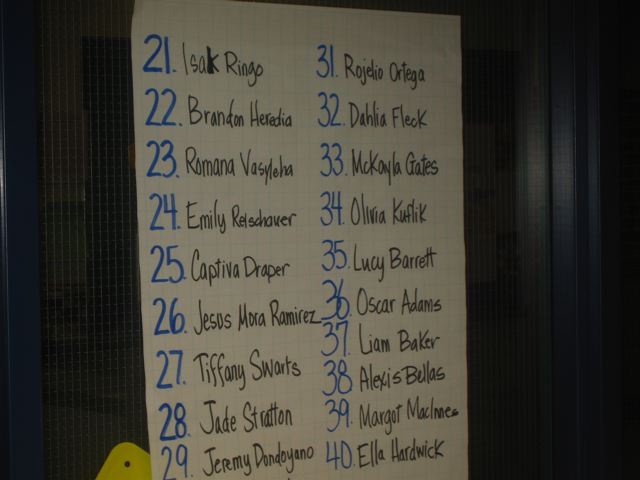 21. Isak Ringo
22. Brandon Heredia
23. Romana Vasyleha
24. Emily Reischauer
25. Captiva Draper
26. Jesus Mora Ramirez
27. Tiffany Swarts
28. Jade Stratton
29. Jeremy Dondoyano
31. Rojelio Ortega
32. Dahlia Fleck
33. McKayla Gates
34. Olivia Kuflik
35. Lucy Barrett
36. Oscar Adams
37. Liam Baker
38. Alexis Bellas
39. Margot MacInnes
40. Ella Hardwick